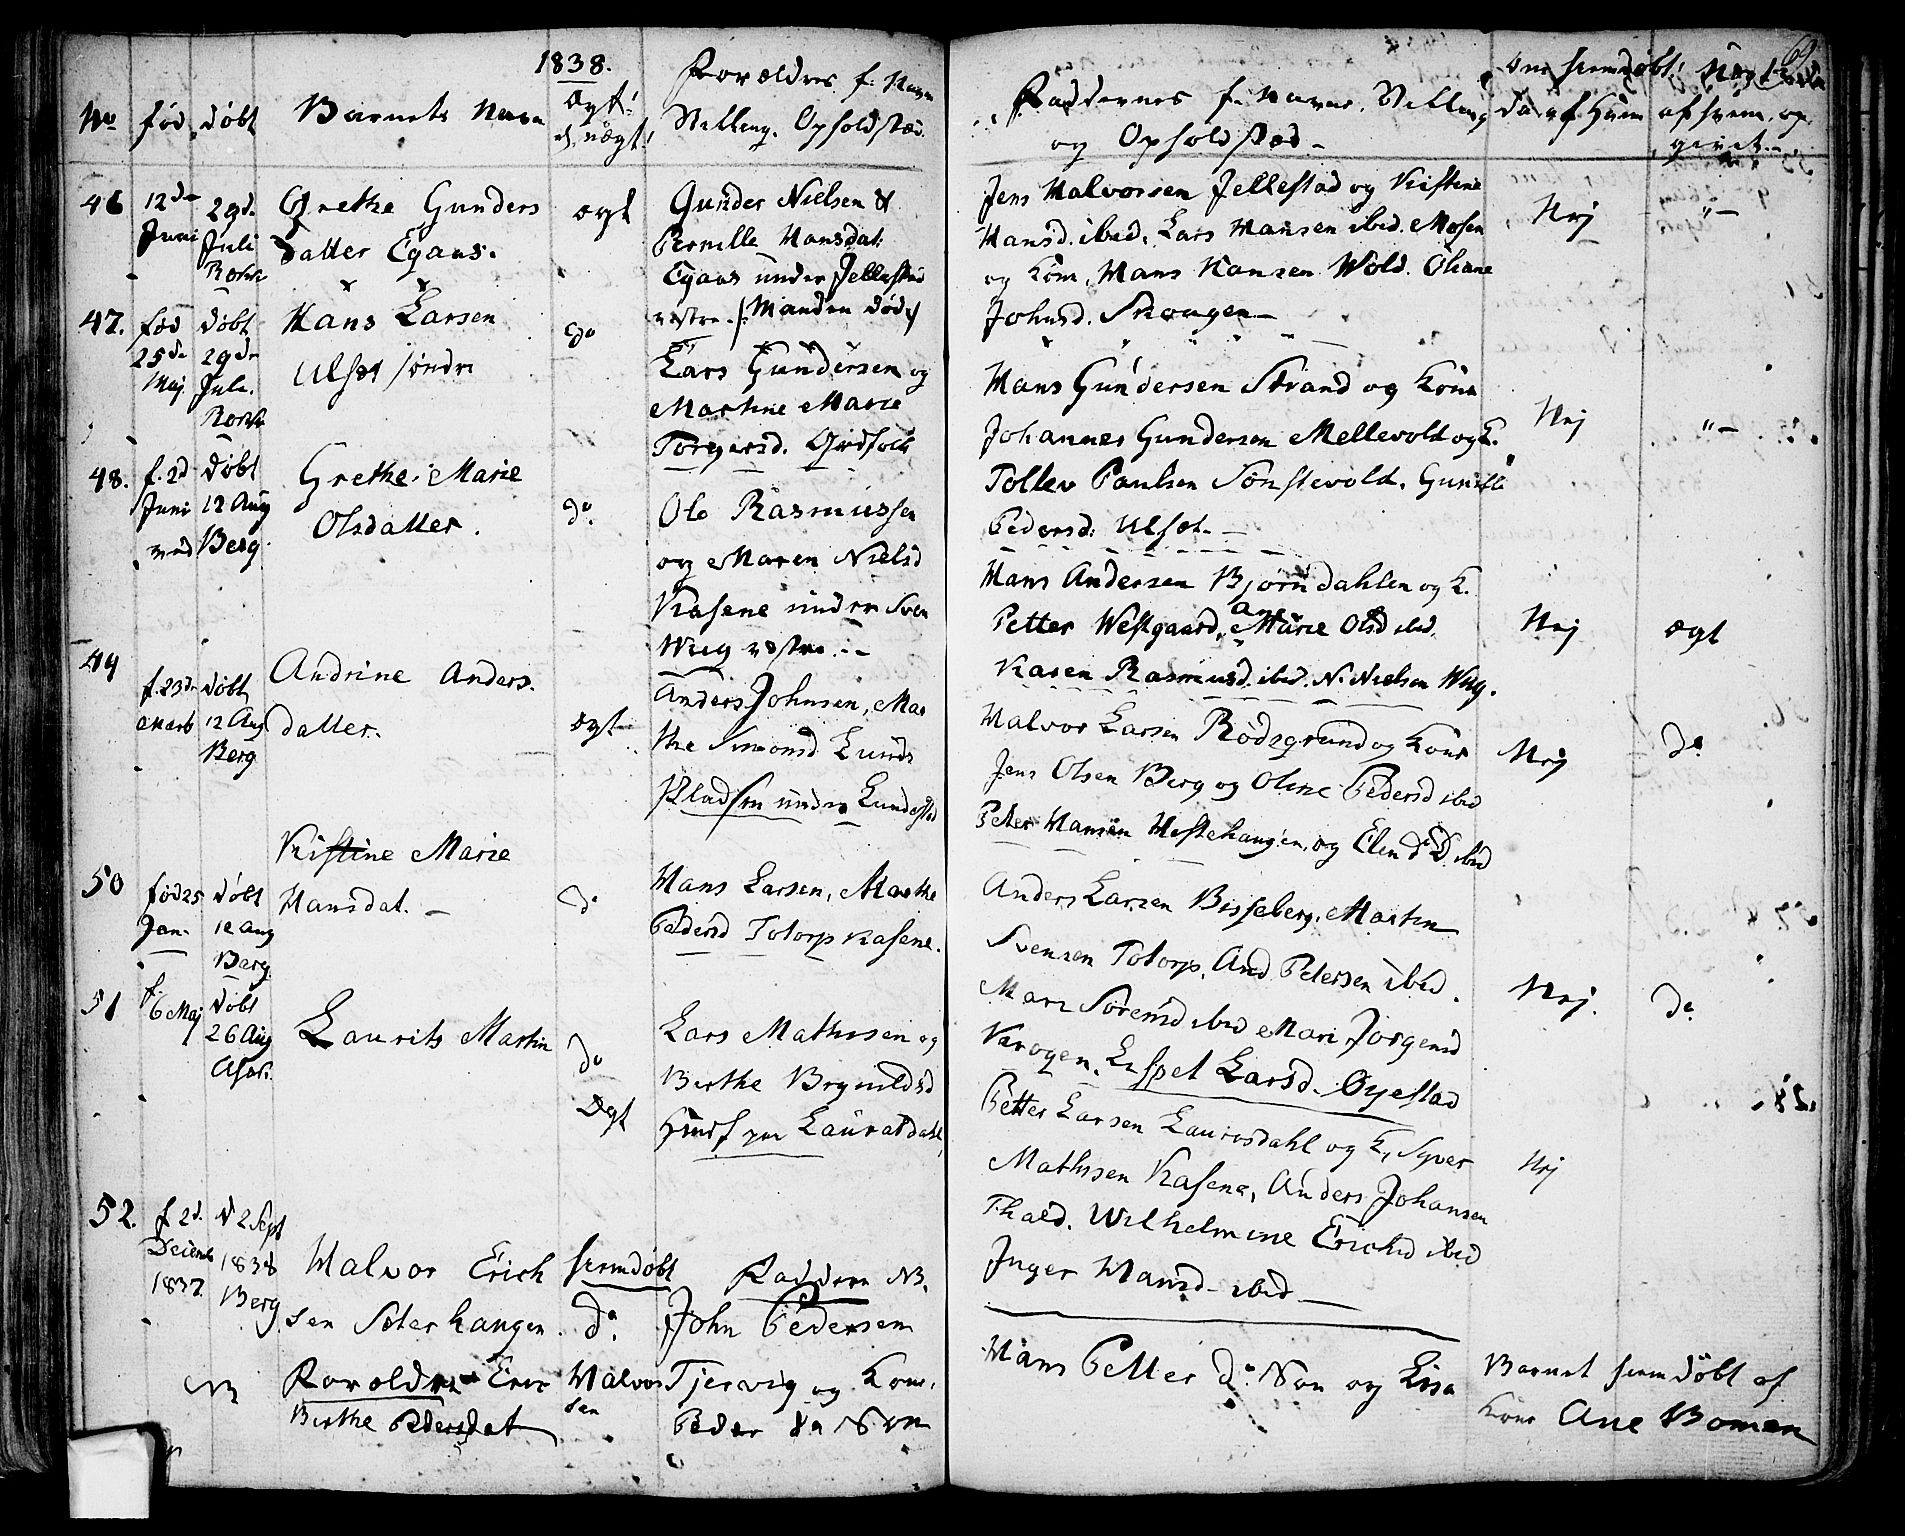 1838.
69
No
fød
døbt
Barnets Navn
Ægt!
el. uægt!
Forældres f. Navn
Stilling. Opholdsted.
Faddernes f. Navne. Stilling
og Opholdsted.-
Om hiemdøbt!
Da af hvem
af hvem, op
givet.-
46
12de
Juni
29d.
Juli
Grethe Gunders
datter Egaas.
ægt
Gunder Nielsen &
Pernille Hansdat.
Egaas under Jellestad
vestre. /: Manden død:/
Jens Halvorsen Jellestad og Kistine
Hansd. ibid. Lars Hansen ibid. Mosen
og Kone, Hans Hansen Wold. Oliane
Johnsd. Skougen-
Nej
"-
47.
fød
25de
Maj.
døbt
29de
Juli.
Hans Larsen
Ulset søndre
do
Lars Gundersen og
Martine Marie
Torgersd.
Hans Gundersen Strand og Kone
Johannes Gundersen Mellevold og K.
Tollev Paulsen Sønstevold. Gunild
Pedersd. Ulset.-
Nej
"-
48.
f. 2d
Juni
døbt
12 Aug
Berg.
Grethe Marie
Olsdatter.
do.
Ole Rasmussen
og Maren Nielsd
Kasene under
Wiig vestre.-
Hans Andersen Bjørndahlen og K.
Petter Westgaard, Ane Marie Olsd ibid.
Karen Rasmusd. ibid. N. Nielsen Wiig.
Nej
ægt
49
f. 23de
Marts
døbt
12 Aug
Berg
Andrine Anders.
datter.
ægt
Anders Johnsen, Mar
the Simonsd Lunds
Pladsen under Lundestad
Halvor Larsen Rødsgrund og Kone
Jens Olsen Berg og Oline Pedersd ibid
Peter Hansen Hestehaugen, og Elen do D. ibid
Nej
do
50
fød 25
Jan.
døbt
12 Aug
Berg.
Kistine Marie
Hansdat. -
do
Hans Larsen, Marthe
Pedersd Totorp Kasene.
Anders Larsen Bisseberg. Martin
Svensen Totorp, And Petersen ibid.
Mari Sørensd ibid Mari Jørgensd
Krogen. Lispet Larsd. Øyestad
Nej.
do
51
f.
6 Maj
døbt
26 Aug
Asak.
Laurits Martin
do
Ægt
Lars Mathisen og
Birthe Brynildsd
Huusf paa Lauratdahl
Petter Larsen Laurasdahl og K, Syver
Mathisen Kasene, Anders Johansen
Thald. Wilhelmine Erichsd ibid
Inger Hansd- ibid -
Nej
52.
f 2d.
Decemb
1837.
d 2 Sept
1838
Berg
Halvor Erich
sen Sæterhaugen
hiemdøbt
do.
Faddere NB.
John Pedersen
Tjervig og Kone.
Peder do Søn
Hans Petter do Søn og Lisa
Barnet hiemdøbt af
Kone Ane Bomen
NB
Forældre Eric Halvor
sen
Birthe Pedersdat